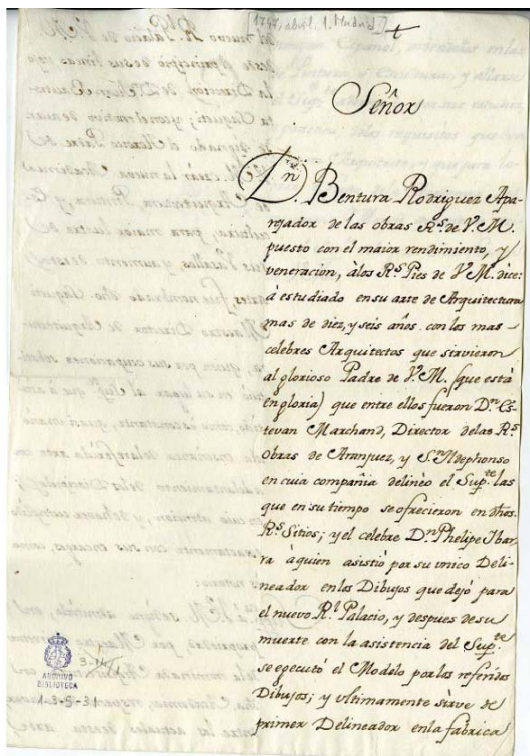 [1747, abril, 1. Madrid]
Señor
Dn. Bentura Rodriguez Apa-
rejador de las obras Rs. de V. M.
puesto con el maior rendimiento, y
veneracion, àlos Rs. Pies de V. M. dice:
à estudiado en su arte de Arquitectura
mas de diez, y seis años con los mas
celebres Arquitectos que sirvieron
al glorioso Padre de V. M. (que está
en gloria) que entre ellos fueron Dn. Es-
tevan Marchand, Director delas Rs.
obras de Aranjuez, y Sn. Ildephonso
en cuia compañia delineò el Supte. las
que en su tiempo se ofrecieron en dhos.
Rs. Sitios; y el celebre Dn. Phelipe Ibar-
ra àquien asistió por su unico Deli-
neador en los Dibujos que dejó para
el nuevo Rl. Palacio, y despues de su
muerte con la asistencia del Supte.
se egecutó el Modelo por los referidos
Dibujos; y ultimamente sirve de
primer Delineador en la fabrica
ARCHIVO
BIBLIOTECA
1-3-9-31